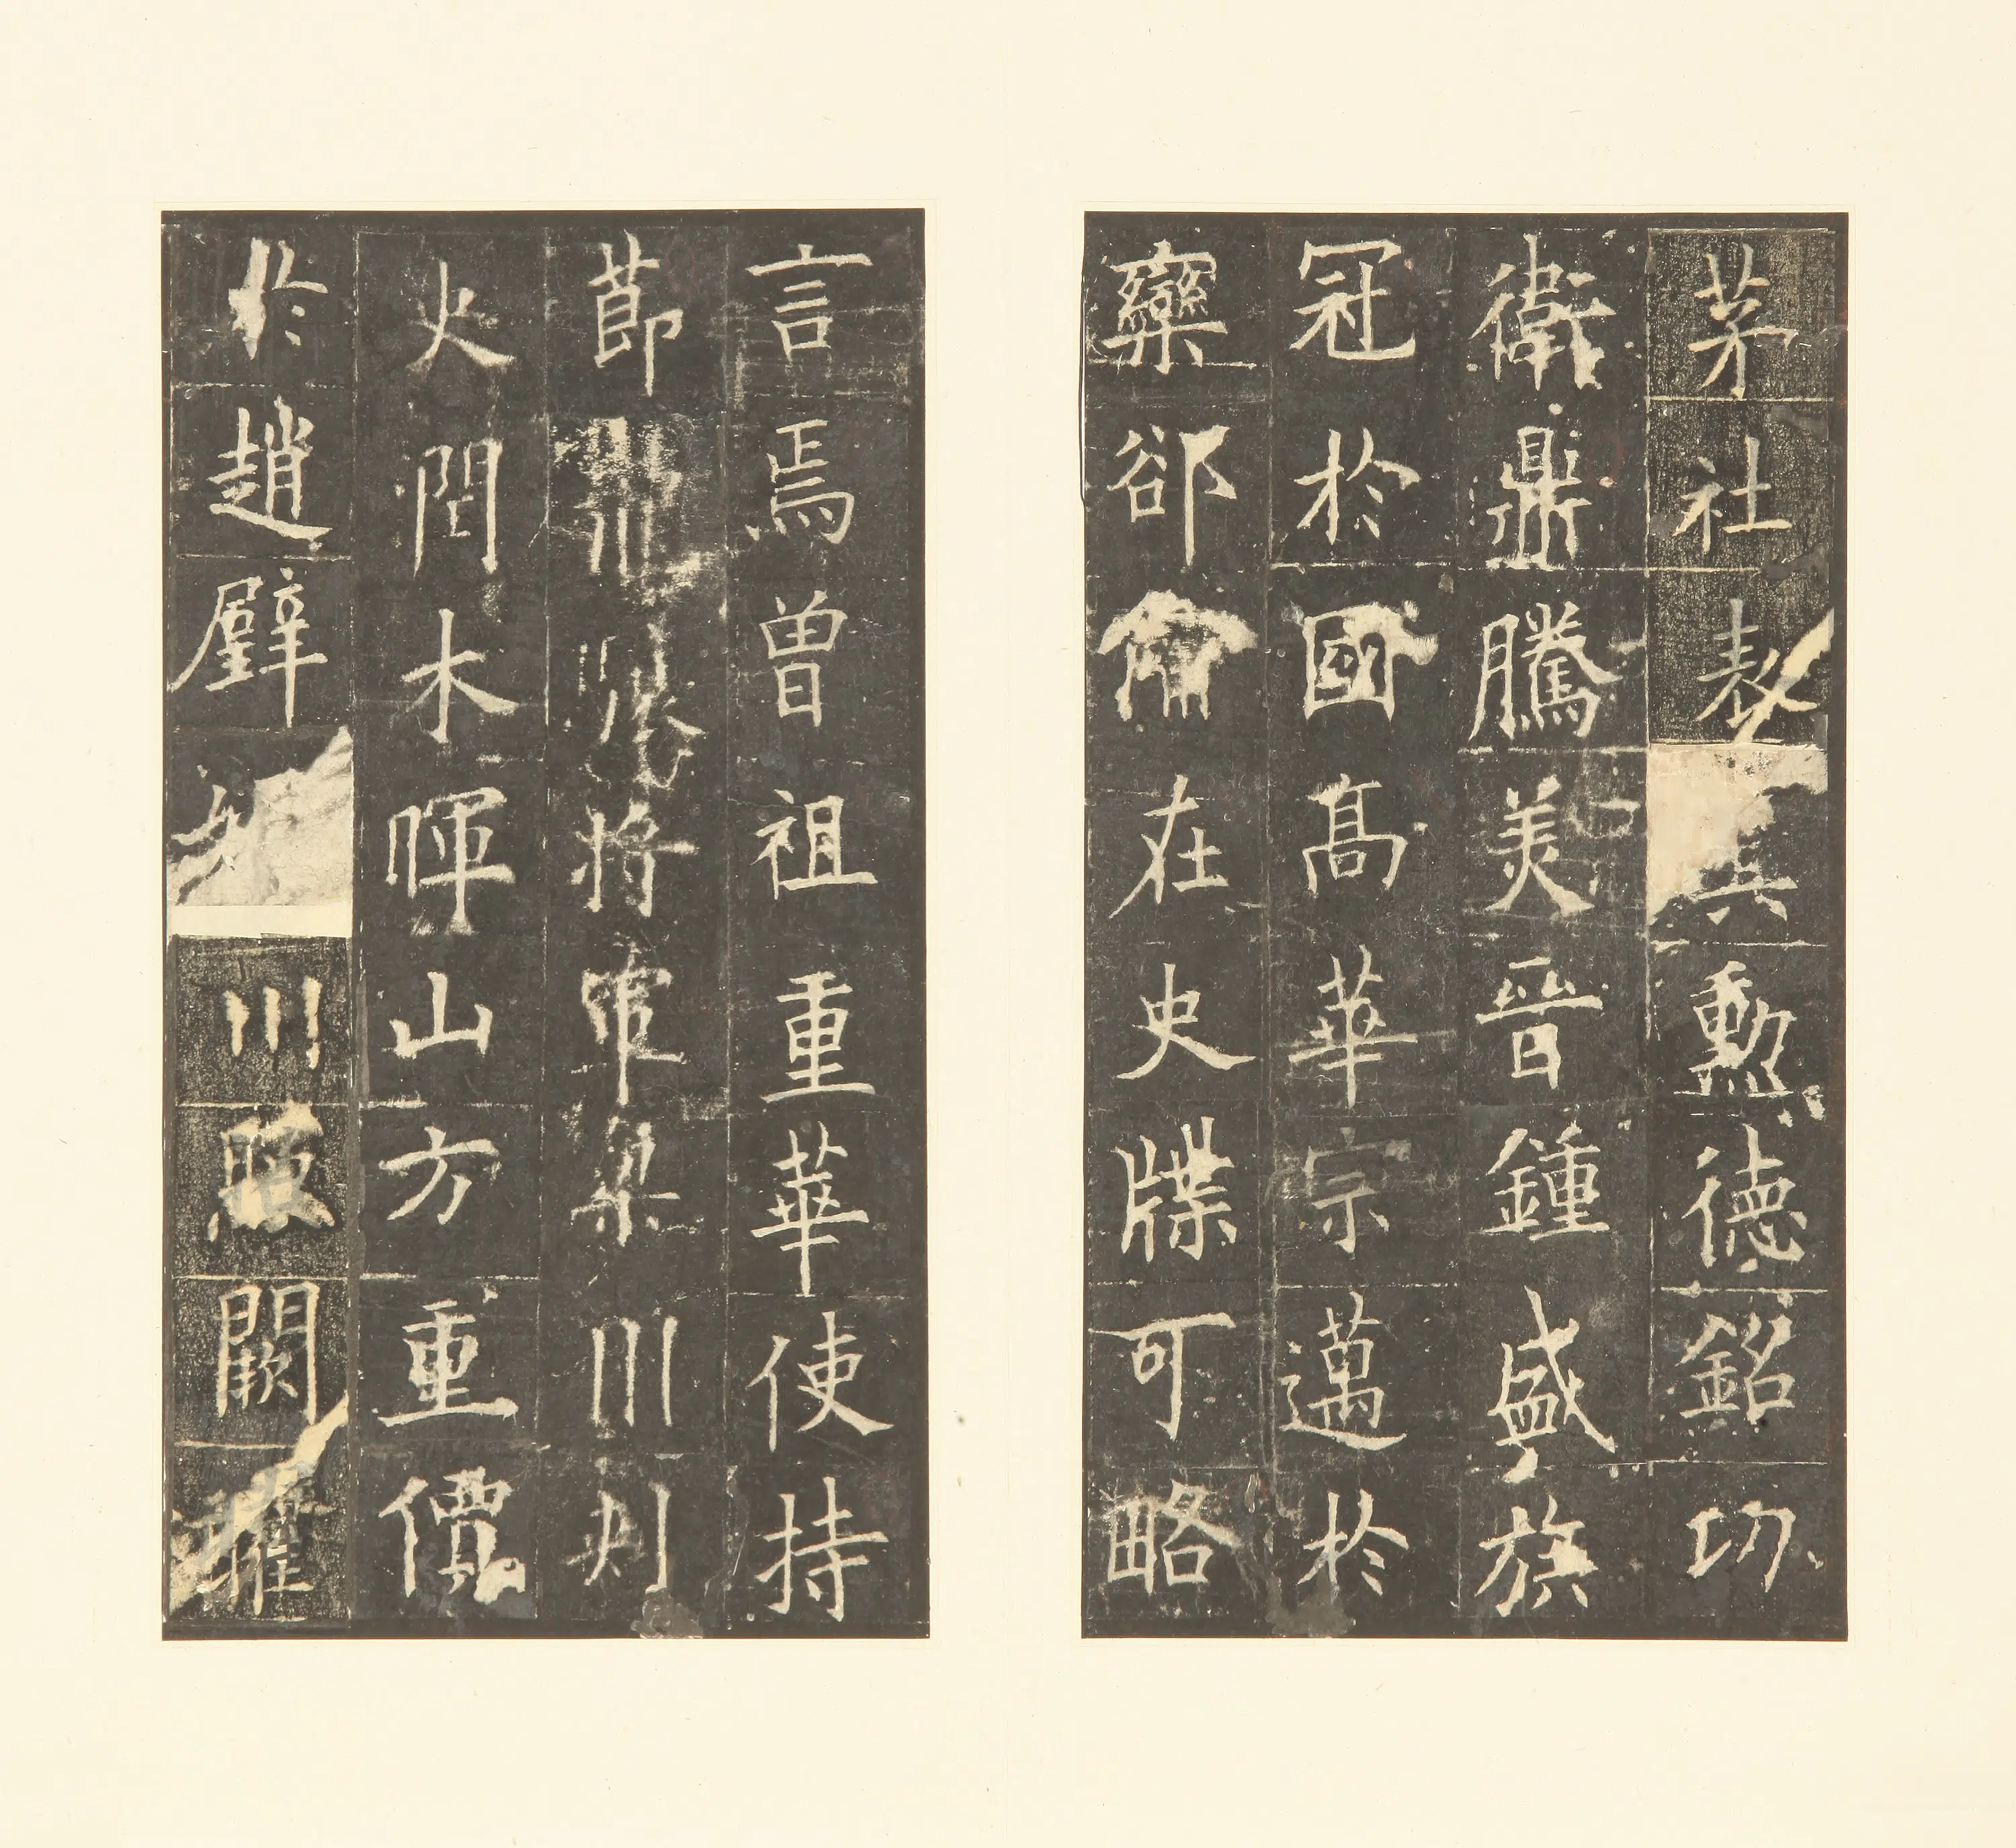 茅社表其勳德銘功
衛鼎騰美晉鍾盛族
冠於國高華宗邁於
欒郤備在史牒可略
言焉曾祖重華使持
節龍驤將軍梁州刺
史潤木暉山方重價
於趙璧川照闕曜